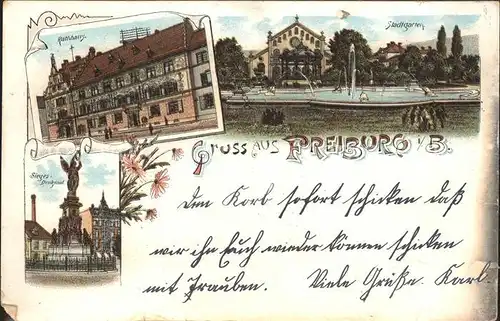 Rathhaus.
Stadtgarten
Gruss aus Freiburg i/B.
Sieges-
Denkmal
Den Korb sofort schicken daß
wir ihn Euch wieder können schicken
mit Trauben. Viele Grüße. Karl.